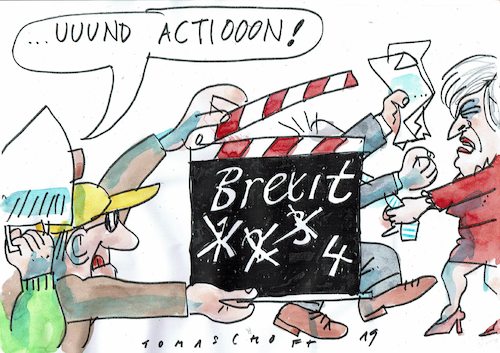 ...UUUND ACTIOOON!
Brexit
1 2 3
4
TOMASCHOFF 19